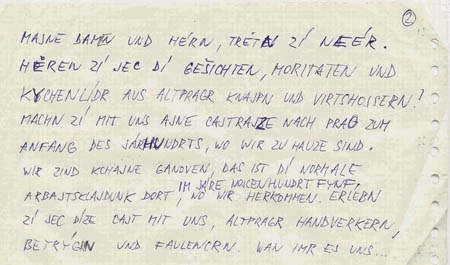 ②
MAJNE DAMN UND HÉRN, TRÉTN ZÍ NÉÉR.
HÉREN ZÍ JEC DÍ GEŠICHTEN, MORITATEN UND
KYCHENLÍDR AUS ALTPRAGR KNAJPN UND VIRTSHOSSERN!
MACHN ZÍ MIT UNS AJNE CAJTRAJZE NACH PRAG ZUM
ANFANG DES JÁRHUNDRTS, WO WIR ZU HAUZE SIND.
WIR ZIND KCHAJNE GANOVEN, DAS IST DÍ NORMALE
IM JÁRE NOJCENHUNDRT FYNF,
ARBAJTSKLAJDUNK DORT, WO WIR HERKOMMEN. ERLEBN
ZÍ JEC DÍZE CAJT MIT UNS, ALTPRAGR HANDVERKERN,
BETRÝGRN UND FAULENCRN. WAN IMR ES UNS...